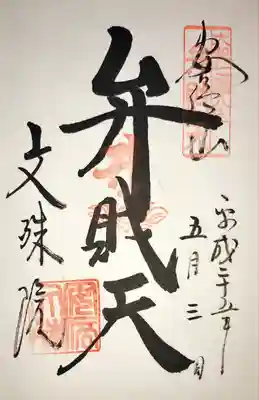 安倍山
平成二十五年
五月三日
弁財天
文殊院